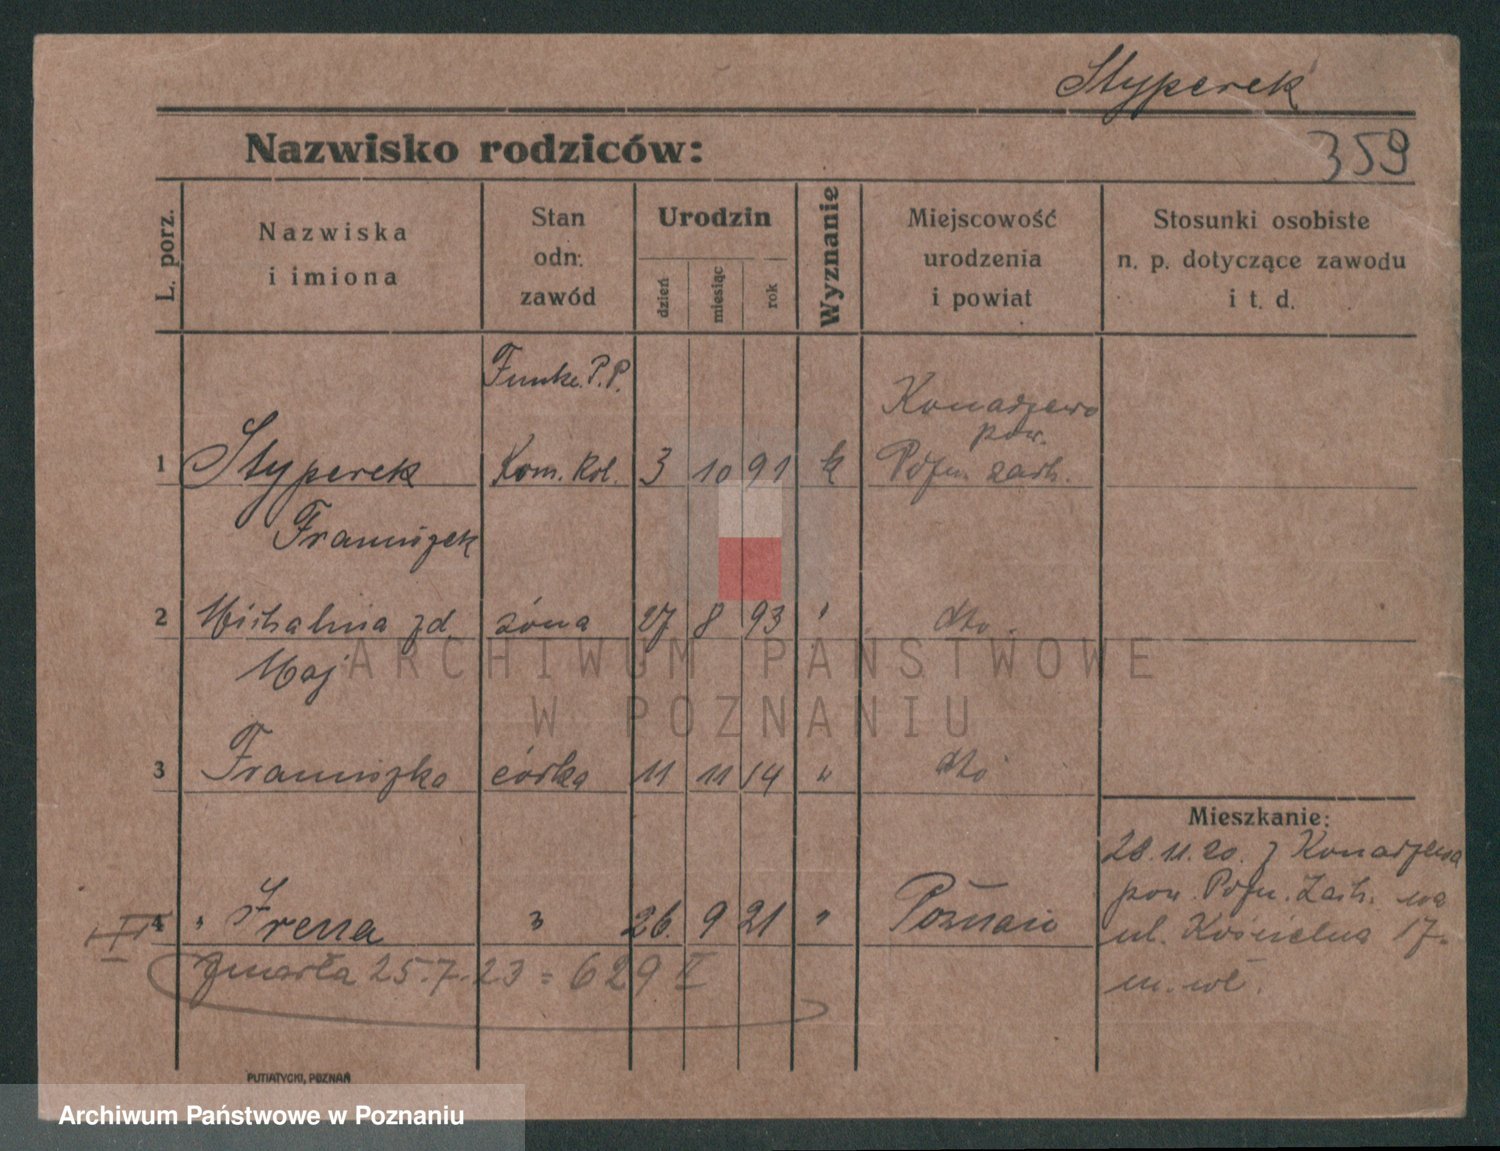 Styperek
Nazwisko rodziców:
359
L. porz.
Nazwiska
i imiona
Stan
odn:
zawód
Urodzin
dzień
miesiąc
rok
Wyznanie
Miejscowość
urodzenia
i powiat
Stosunki osobiste
n. p. dotyczące zawodu
i t. d.
Funkc. P. P.
Konarzewo
pow.
1 Styperek Kom. Kol. 3 10 91 k Pozn. zach.
Franciszek
2 Michalina zd. żona 27 8 93 " dto
Maj
ARCHIWUM PAŃSTWOWE
W POZNANIU
3 Franciszka córka 11 11 14 " dto
Mieszkanie:
28.11.20. z Konarzewa
pow. Pozn. Zach. na
4 " Irena " 26. 9 21 " Poznań
ul. Kościelna 17.
III
zmarła 25.7.23 = 629 II
PUTIATYCKI, POZNAŃ
Archiwum Państwowe w Poznaniu